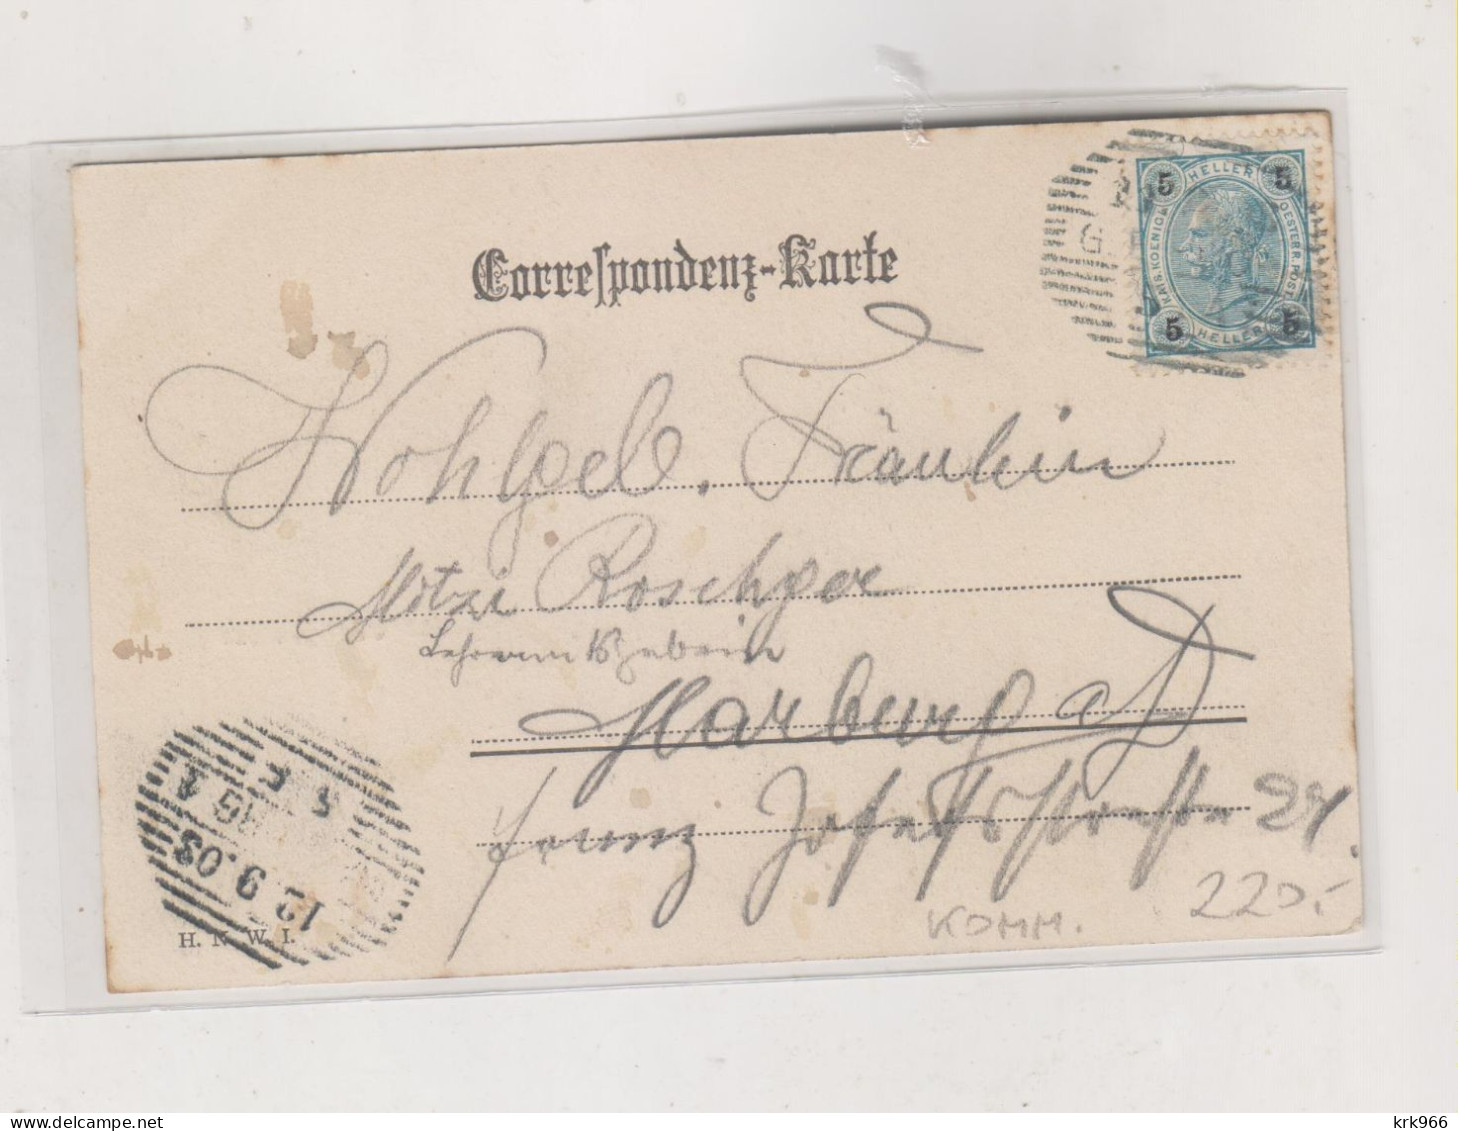 Correspondenz-Karte
5 HELLER 5
KAIS. KOENIGL. OESTERR. POST
5 HELLER 5
Wohlgeb. Fräulein
Mitzi Roschger
Marburg a/D
Franz Josefsstraße
12.9.03
H. N. W. I.
KOMM. 220.-
krk966